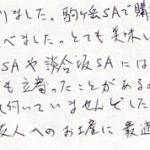 りました。駒ヶ岳SAで購
べました。とても美味し
SAや談合坂SAには
も立寄ったことがある
付いていませんでした
友人へのお土産に最適